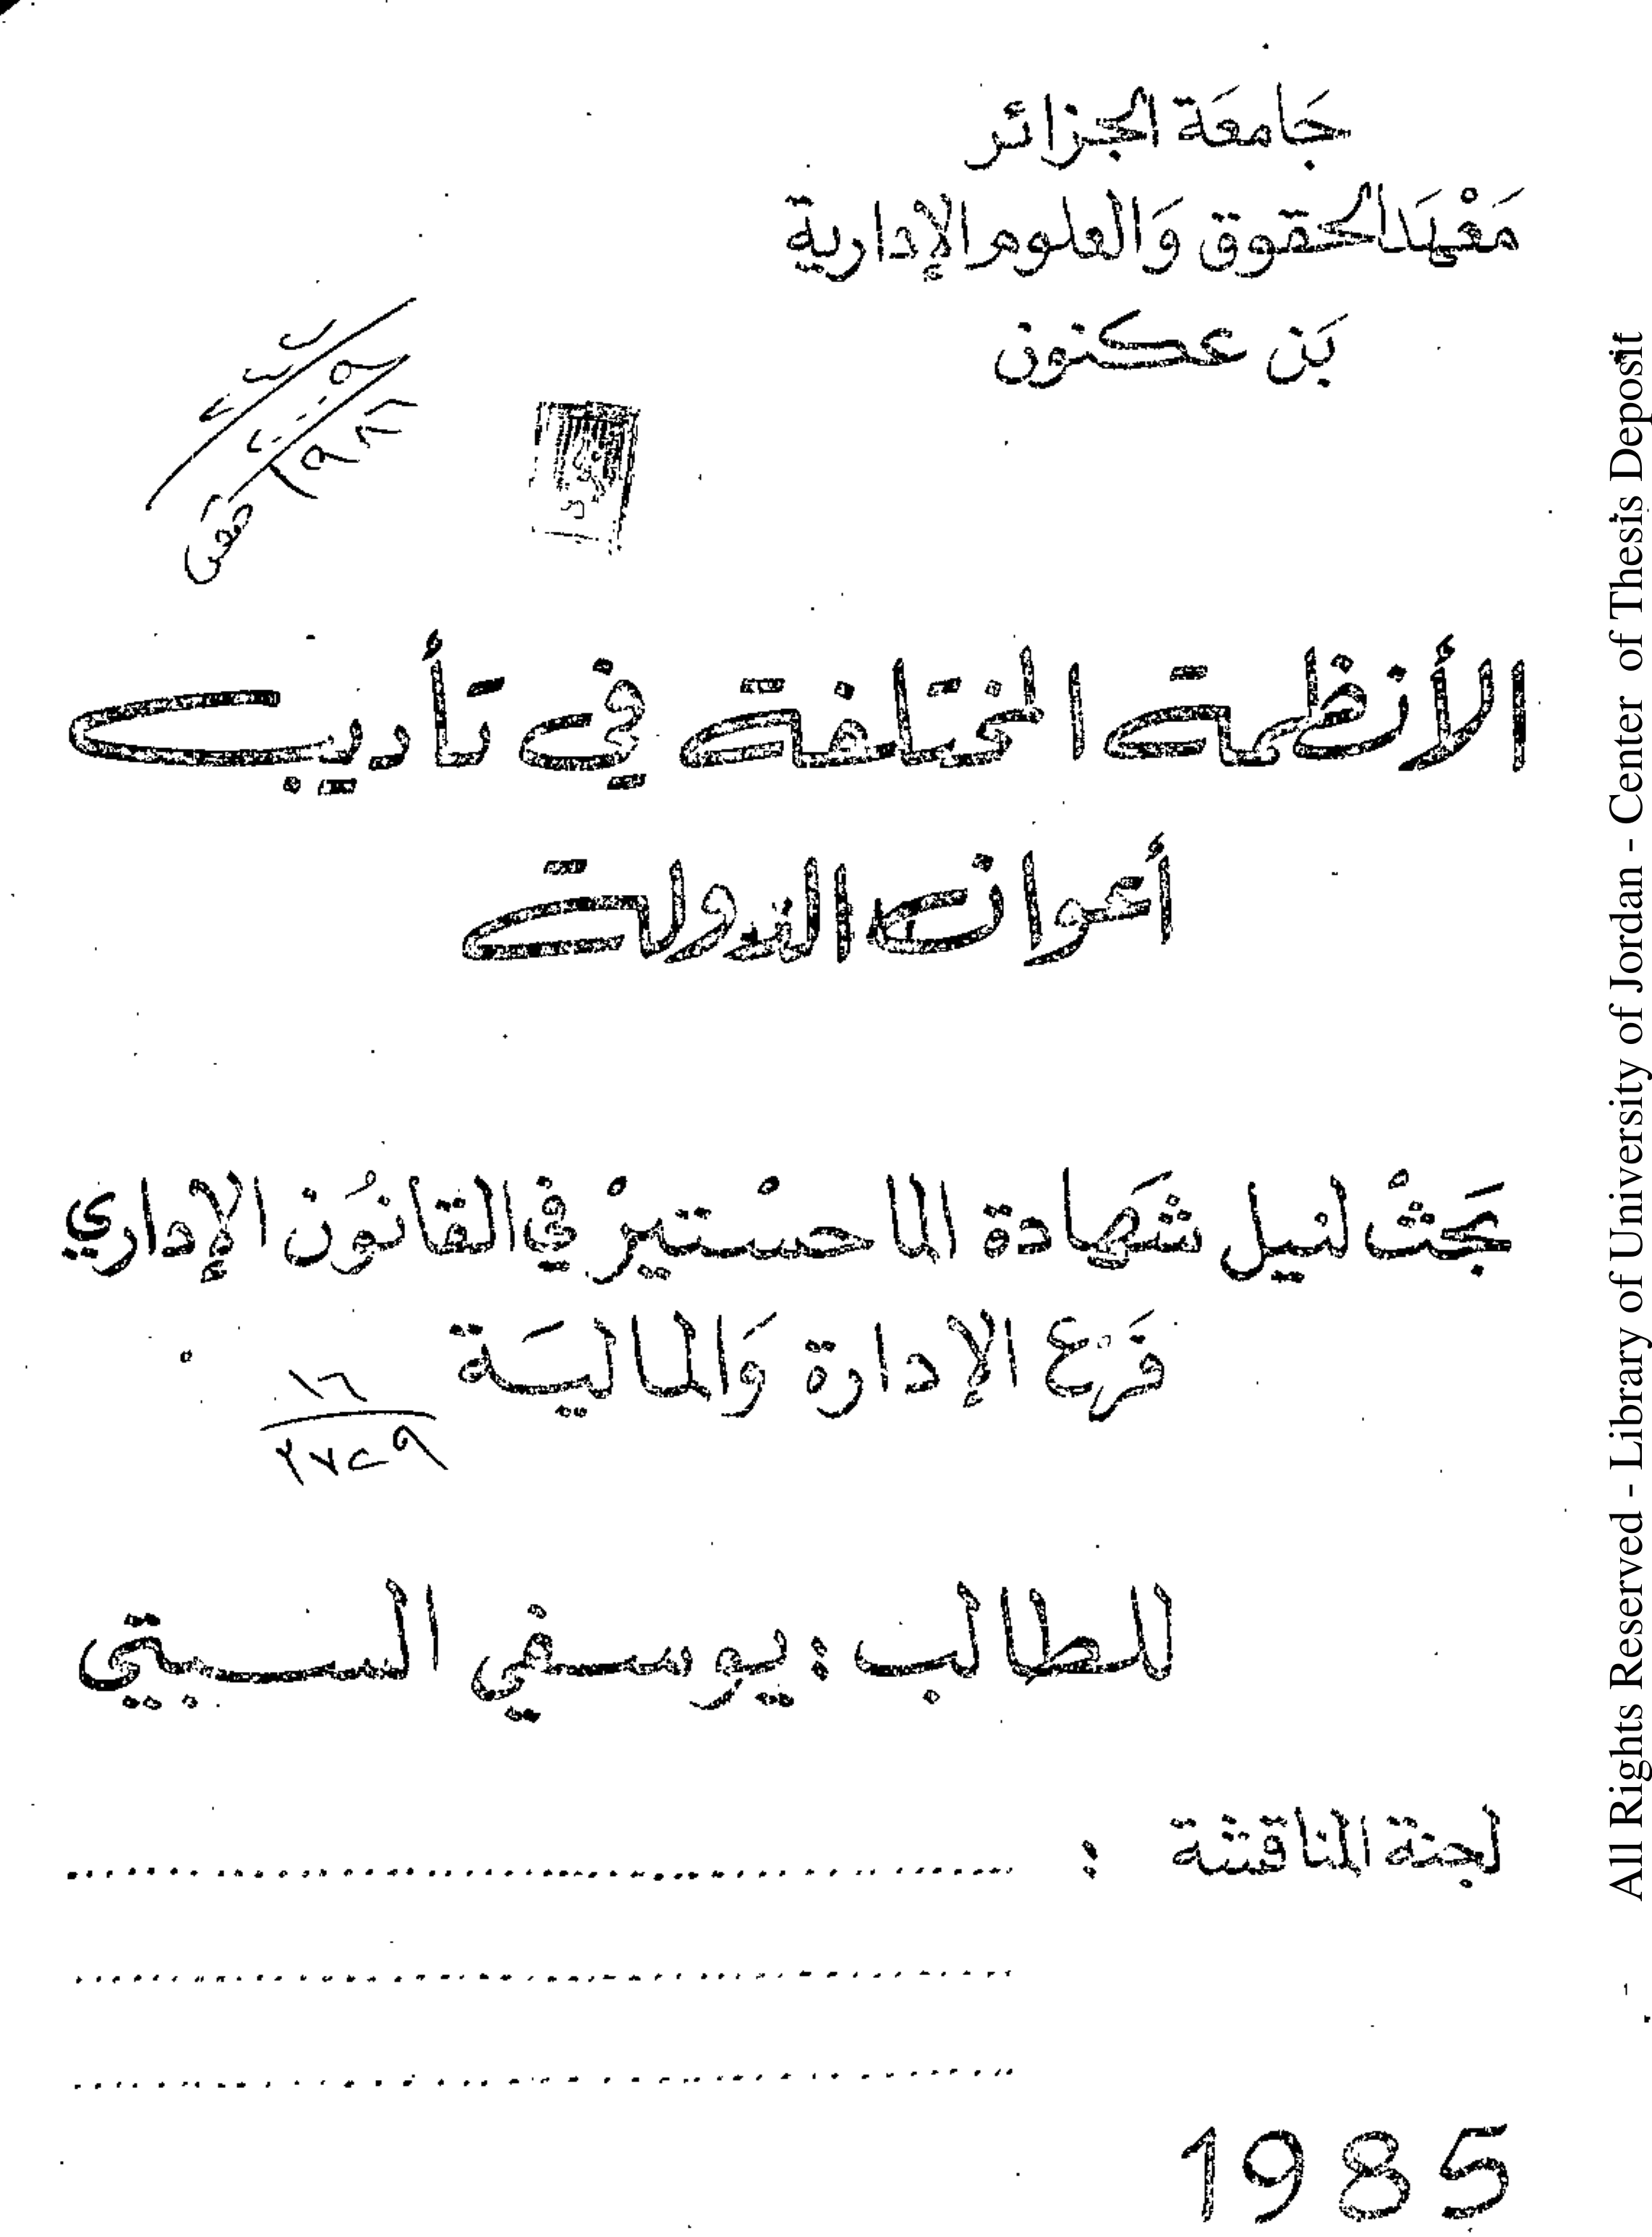 جَامعَة الجزائر
مَعْهَد الحقوق وَالعلوم الإدارية
بَن عكنون
الأنظمة المختلفة في تأديب
أعوان الدولة
بَحثْ لنيل شَهَادة الماجسْتيرْ في القانوُن الإداري
فَرع الإدارة وَالماليَة
١٦
٢٧٢٩
للطالب : يوسفي السبتي
لجنة المناقشة :
1985
All Rights Reserved - Library of University of Jordan - Center of Thesis Deposit